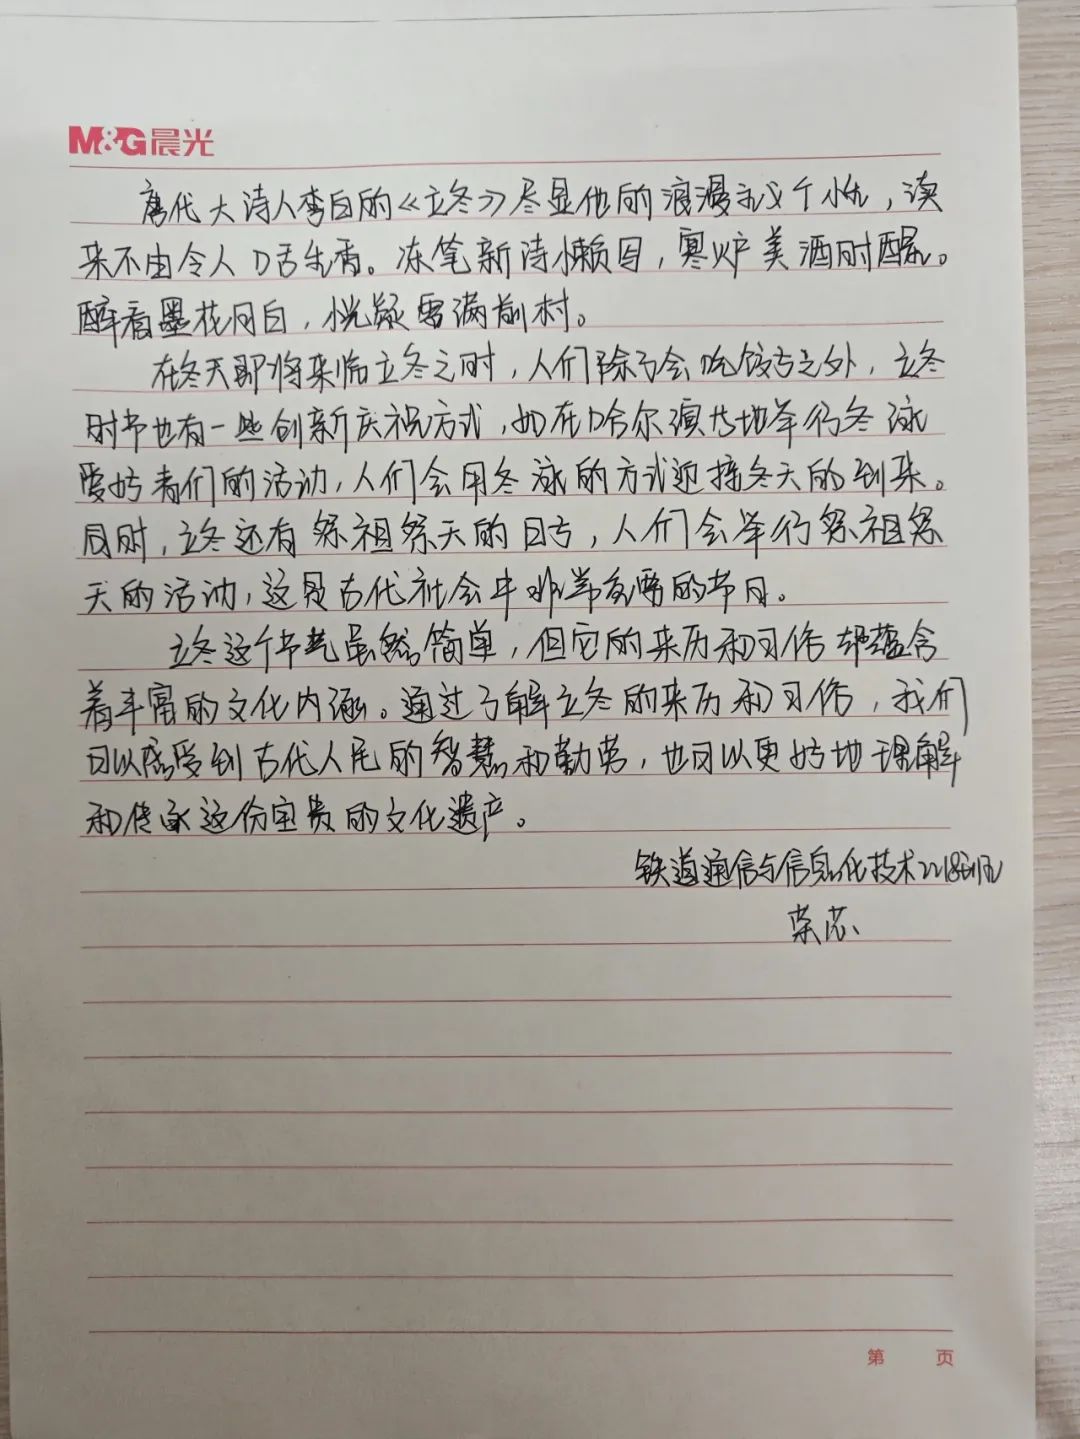 M&G晨光
唐代大诗人李白的《立冬》尽显他的浪漫主义个性，读
来不由令人口舌生香。冻笔新诗懒写，寒炉美酒时醒。
醉看墨花月白，恍疑雪满前村。
在冬天即将来临立冬之时，人们除了会吃饺子之外，立冬
时节也有一些创新庆祝方式，如在哈尔滨当地举行冬泳
爱好者们的活动，人们会用冬泳的方式迎接冬天的到来。
同时，立冬还有祭祖祭天的日子，人们会举行祭祖祭
天的活动，这是古代社会中非常重要的节日。
立冬这个节气虽然简单，但它的来历和习俗都蕴含
着丰富的文化内涵。通过了解立冬的来历和习俗，我们
可以感受到古代人民的智慧和勤劳，也可以更好地理解
和传承这份宝贵的文化遗产。
铁道通信与信息化技术2218班
荣芯
第 页